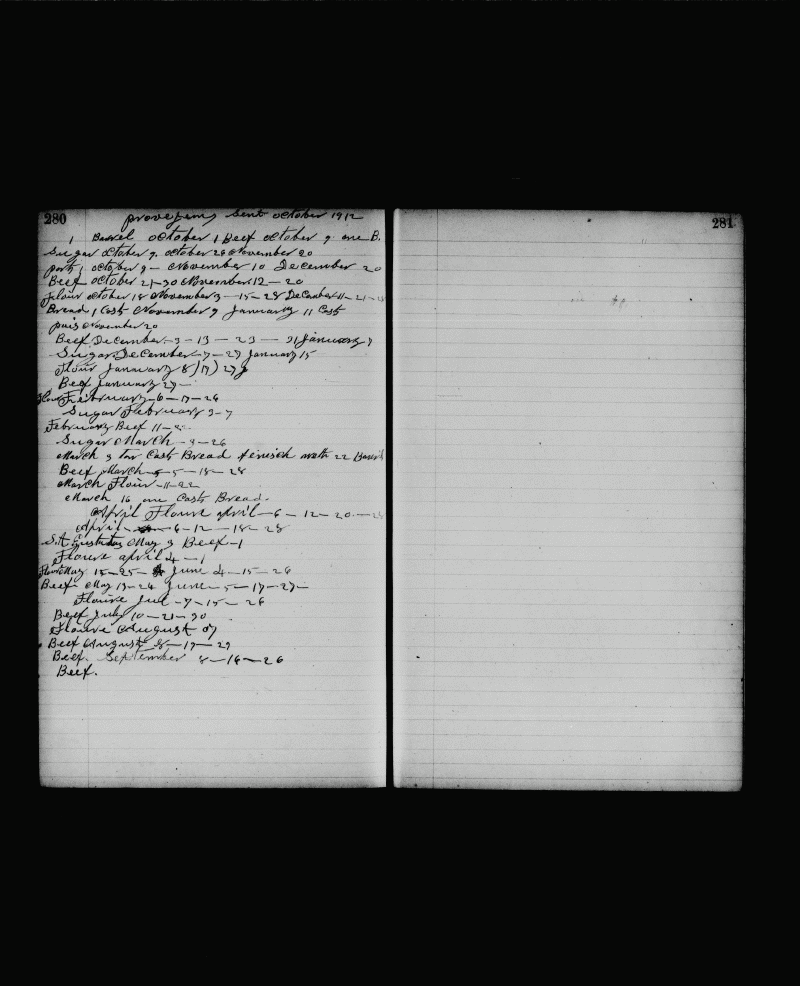 280
provejens sent october 1912
1 Barrel october 1 Beef october 9. one B.
Sugar october 9. october 28 November 20
pork 1 october 9 - November 10 December 20
Beef october 21-30 November 12-20
Flour october 18 November 3-15-28 December 11-21-
Bread 1 Cost November 9 January 11 Cost
pais November 20
Beef December-3-13-23-31 January 9
Sugar December-7-27 January 15
Flour January 8) 17) 27)
Beef January 27-
Flour Februrary-6-17-26
Sugar February 3-7
February Beef 11-
Sugar March-9-26
March 3 Cast Bread with 22
Beef March-5-18-28
March Flour-11-22
March 16 one Cast Bread.
April Floure april-6-12-20-28
April-6-12-18-28
May 3 Beef-1
Floure april 4-1
Flour May 15-25- June 4-15-26
Beef May 13-24 June-5-17-27-
Floure Jul-7-15-26
Beef July 10-21-30
Floure August 07
Beef August 8-19-29
Beef. September 8-16-26
Beef.
281